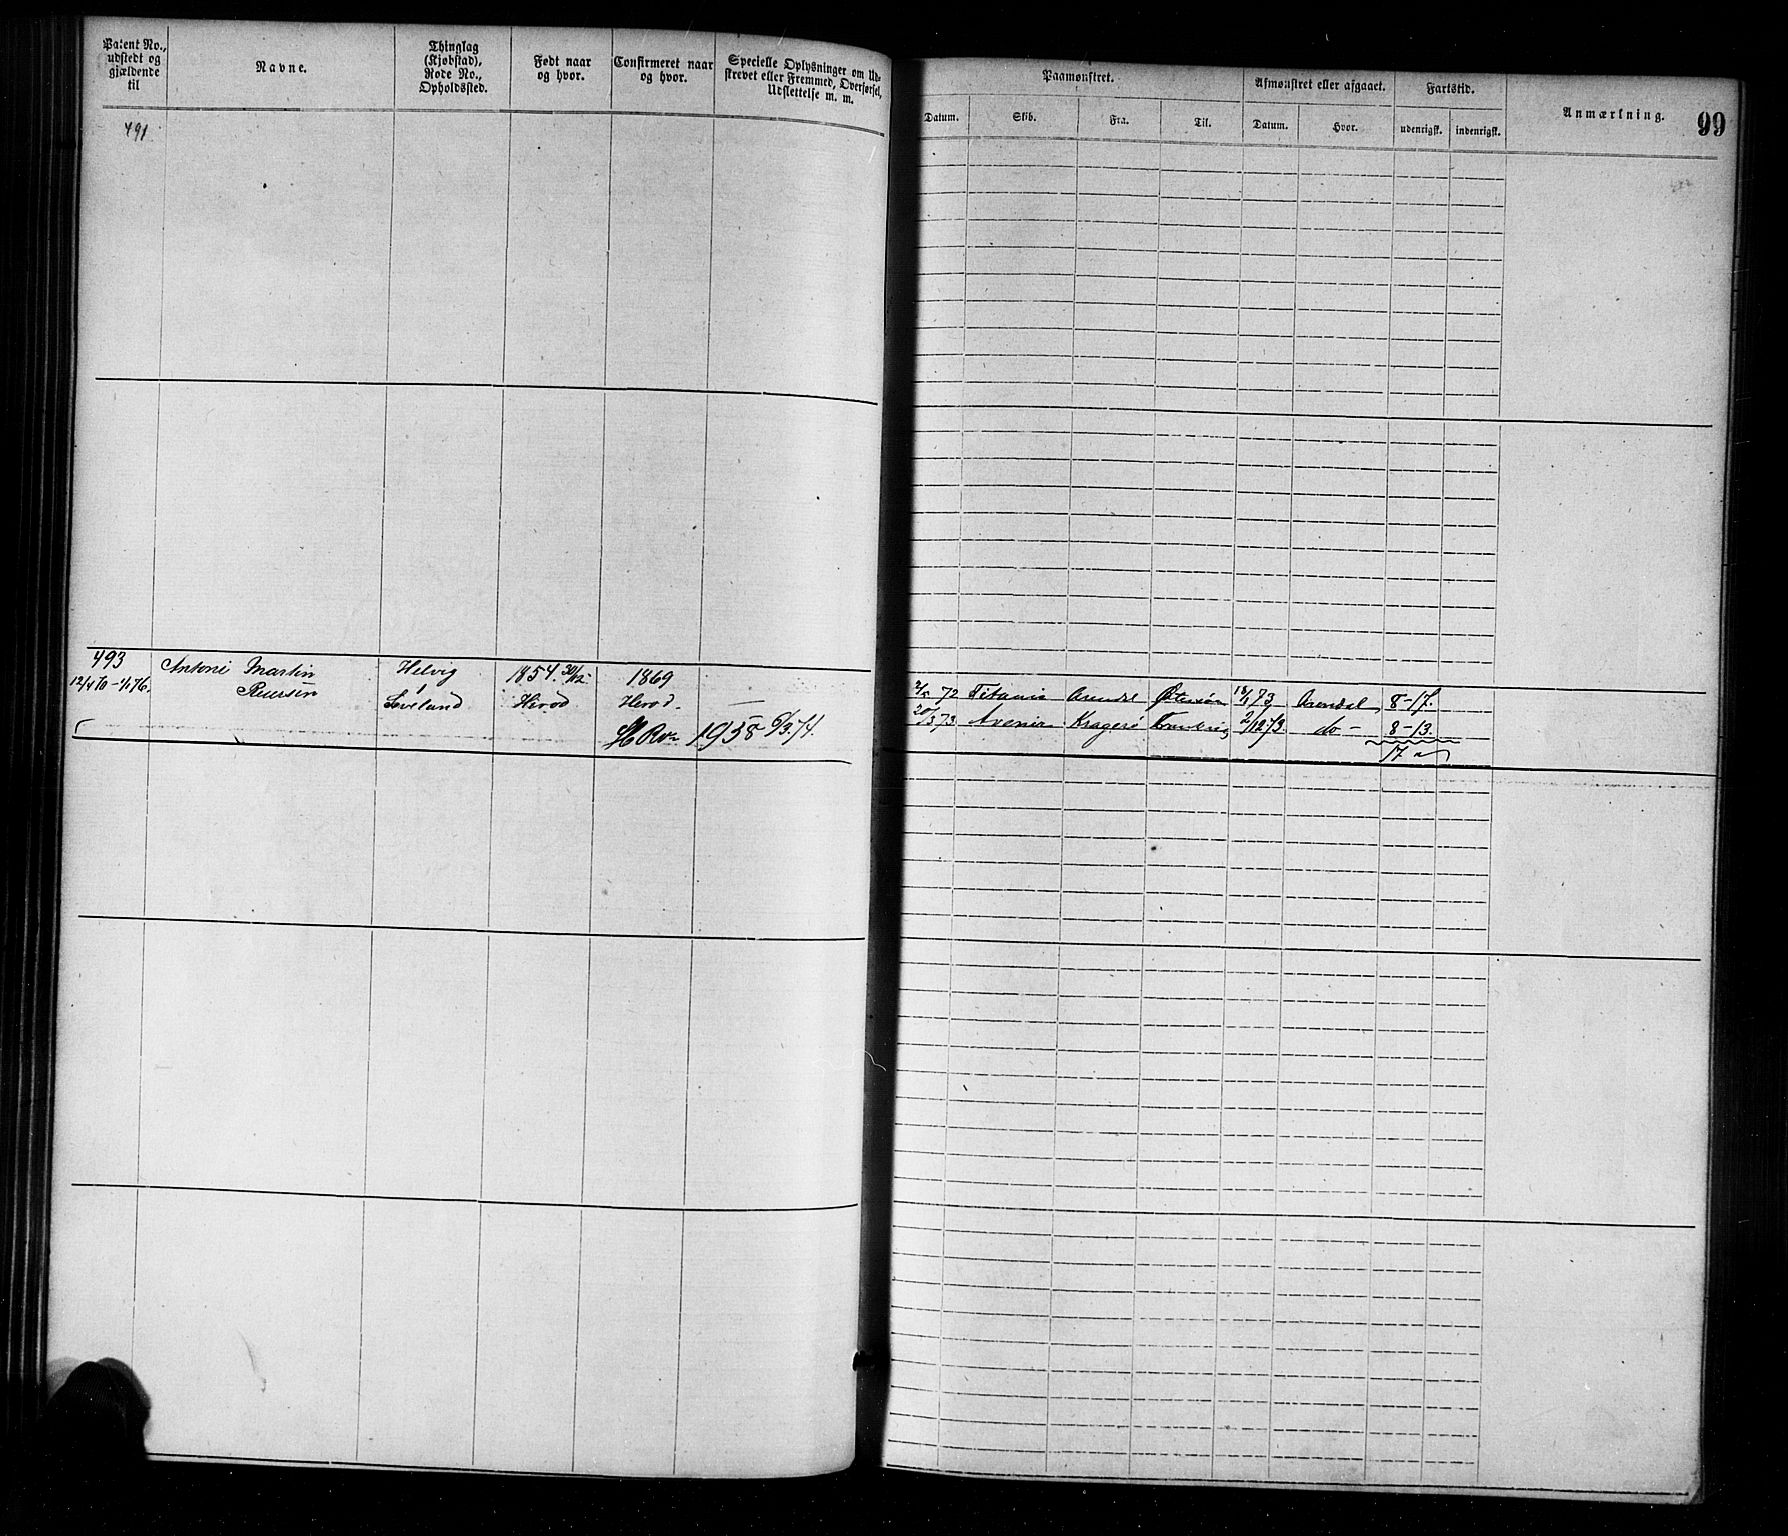 Patent No.,
udstedt og
gjældende
til
Navne.
Thinglag
(Kjøbstad),
Rode No.,
Opholdssted.
Født naar
og hvor.
Confirmeret naar
og hvor.
Specielle Oplysninger om Ud-
skrevet eller Fremmed, Overførsel,
Udslettelse m. m.
Paamønstret.
Datum.
Skib.
Fra.
Til.
Afmønstret eller afgaaet.
Datum.
Hvor.
Fartstid.
udenrigsk.
indenrigsk.
Anmærkning.
99
491
493
Antoni Martin
Helvig
1854. 30/12
1869
12/4 70 – 76.
Herod
Herod.
1958 6/3 74.
72 Titania Arendal 18/1 73 Arendal 8–17.
20/3 73 Avenir Kragerø 2/12 73. do – 8–13.
17